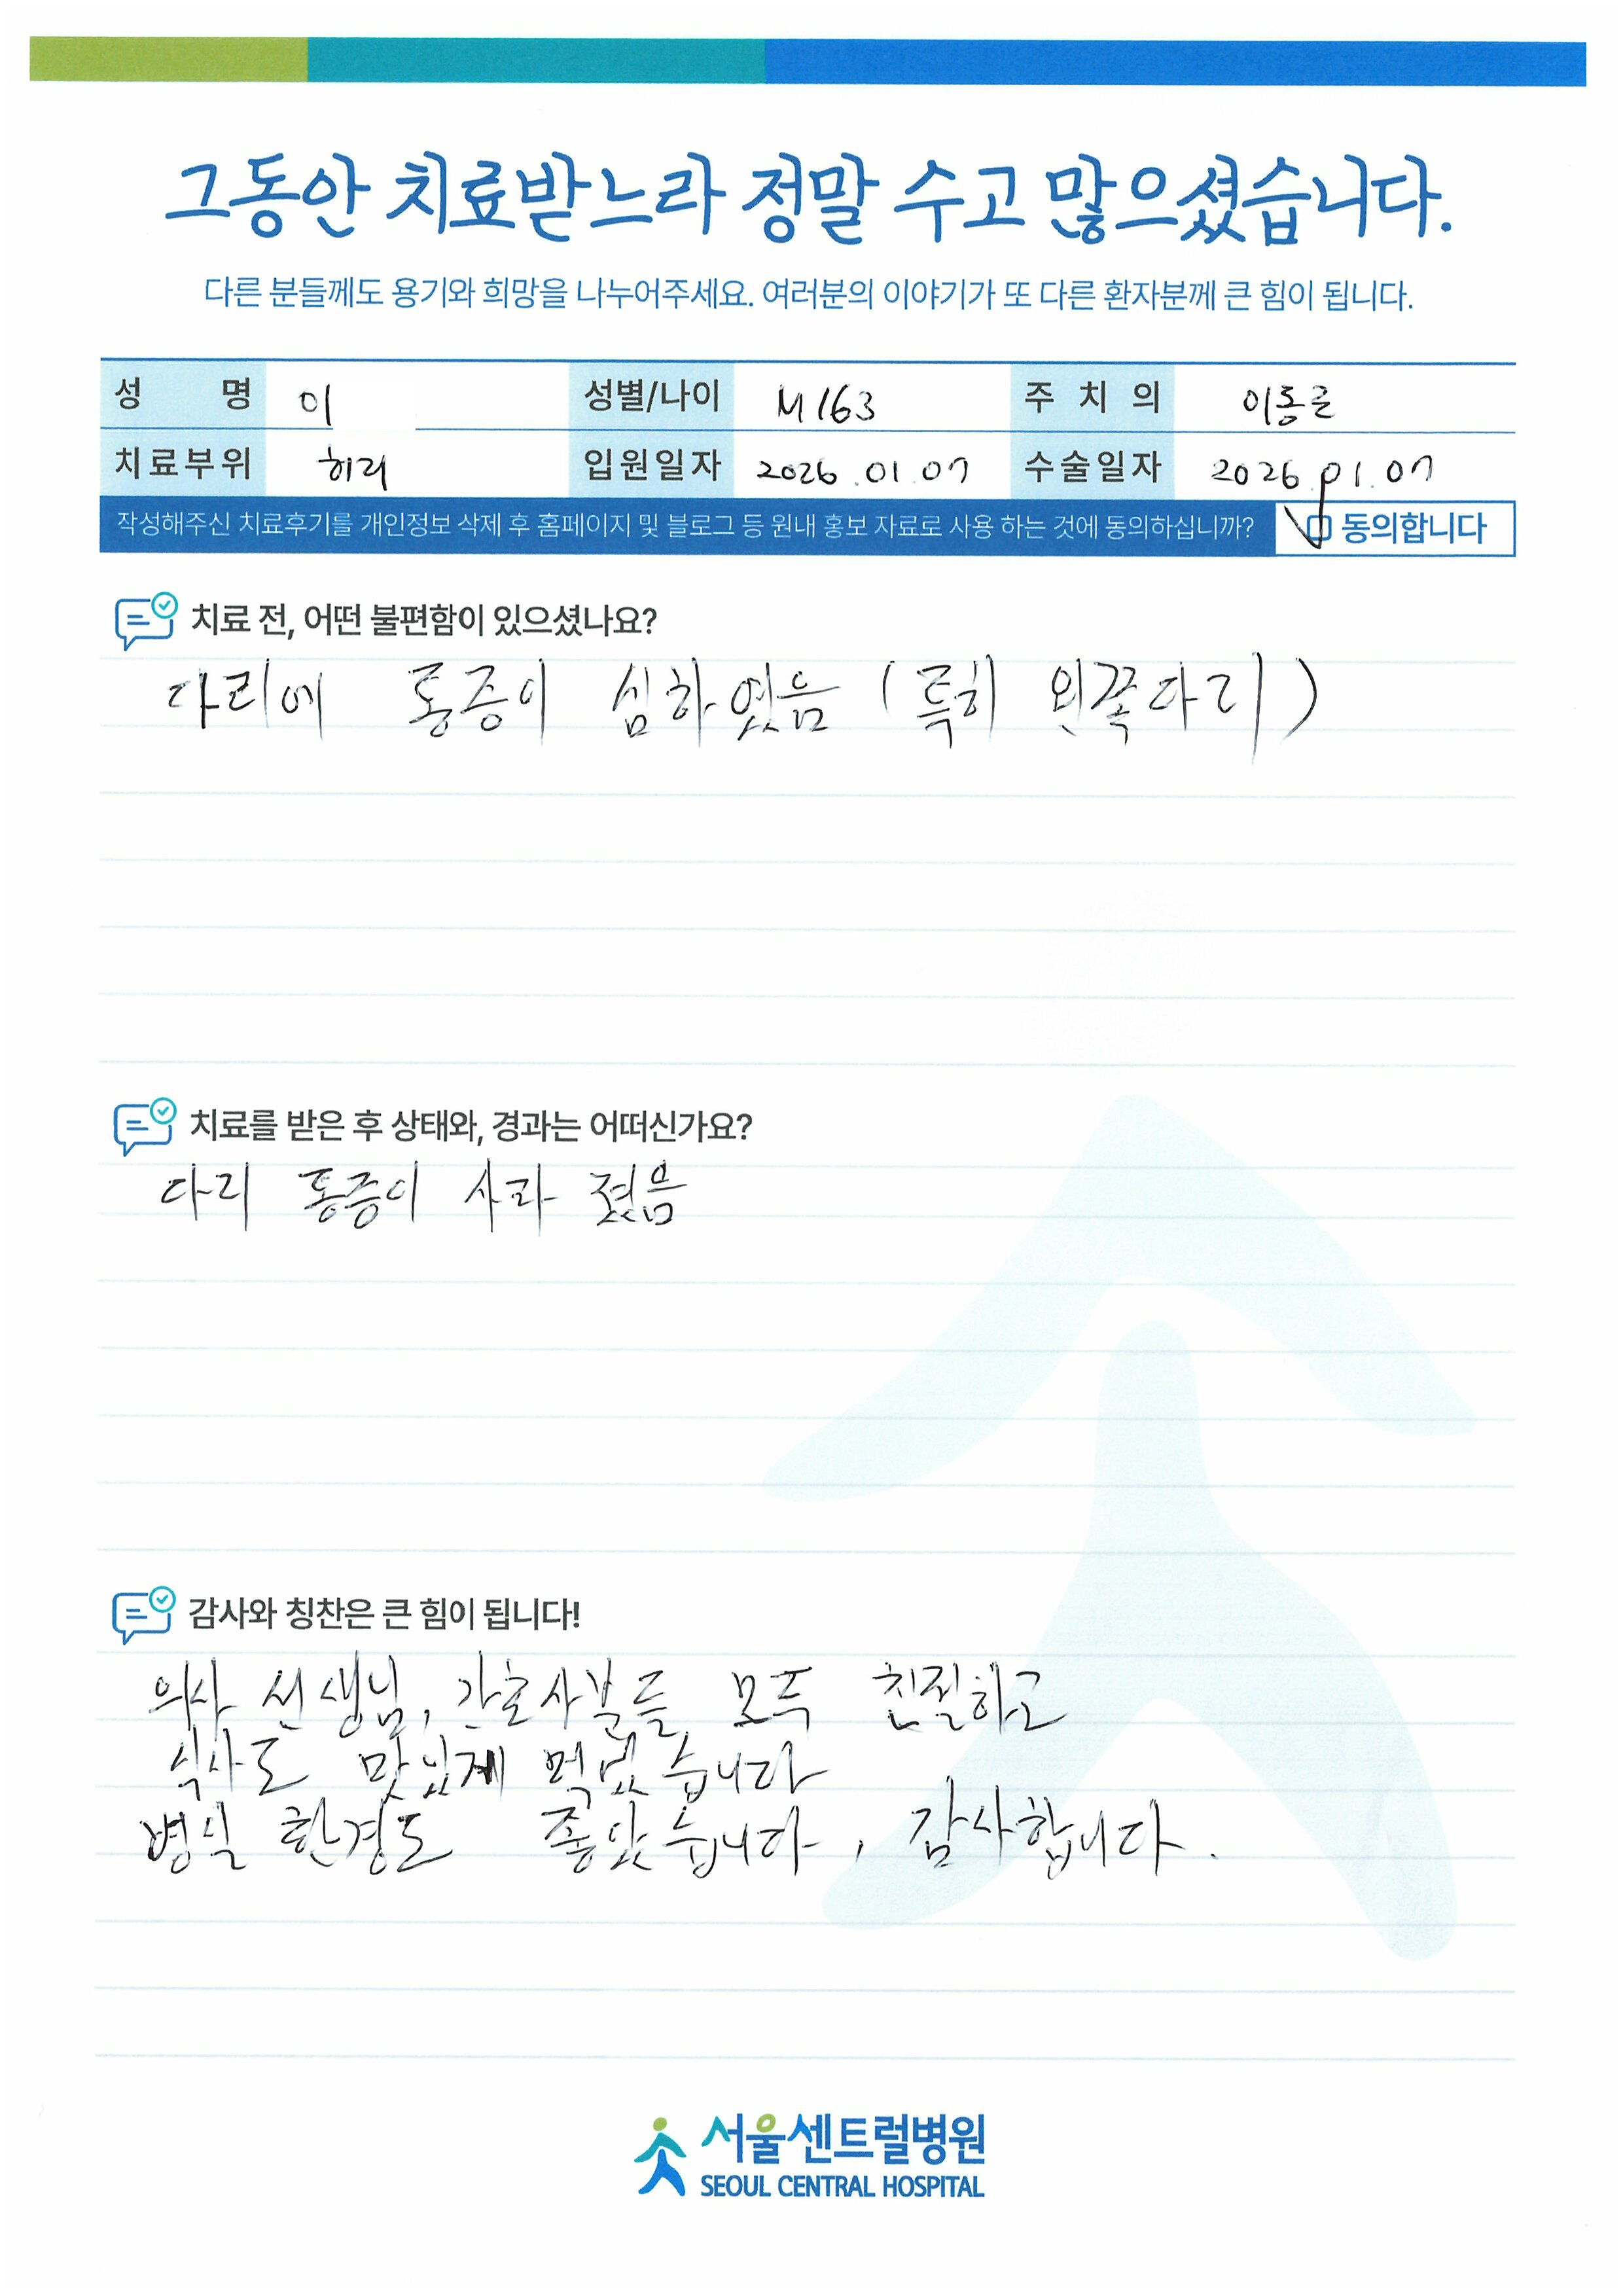 그동안 치료받느라 정말 수고 많으셨습니다.
다른 분들께도 용기와 희망을 나누어주세요. 여러분의 이야기가 또 다른 환자분께 큰 힘이 됩니다.
성 명 이 성별/나이 M/63 주 치 의 이동근
치료부위 허리 입원일자 2026.01.07 수술일자 2026.01.07
작성해주신 치료후기를 개인정보 삭제 후 홈페이지 및 블로그 등 원내 홍보 자료로 사용 하는 것에 동의하십니까? 동의합니다
치료 전, 어떤 불편함이 있으셨나요?
다리에 통증이 심하였음 (특히 왼쪽다리)
치료를 받은 후 상태와, 경과는 어떠신가요?
다리 통증이 사라 졌음
감사와 칭찬은 큰 힘이 됩니다!
의사 선생님, 간호사분들 모두 친절하고
식사도 맛있게 먹었습니다
병실 환경도 좋았습니다, 감사합니다.
서울센트럴병원
SEOUL CENTRAL HOSPITAL